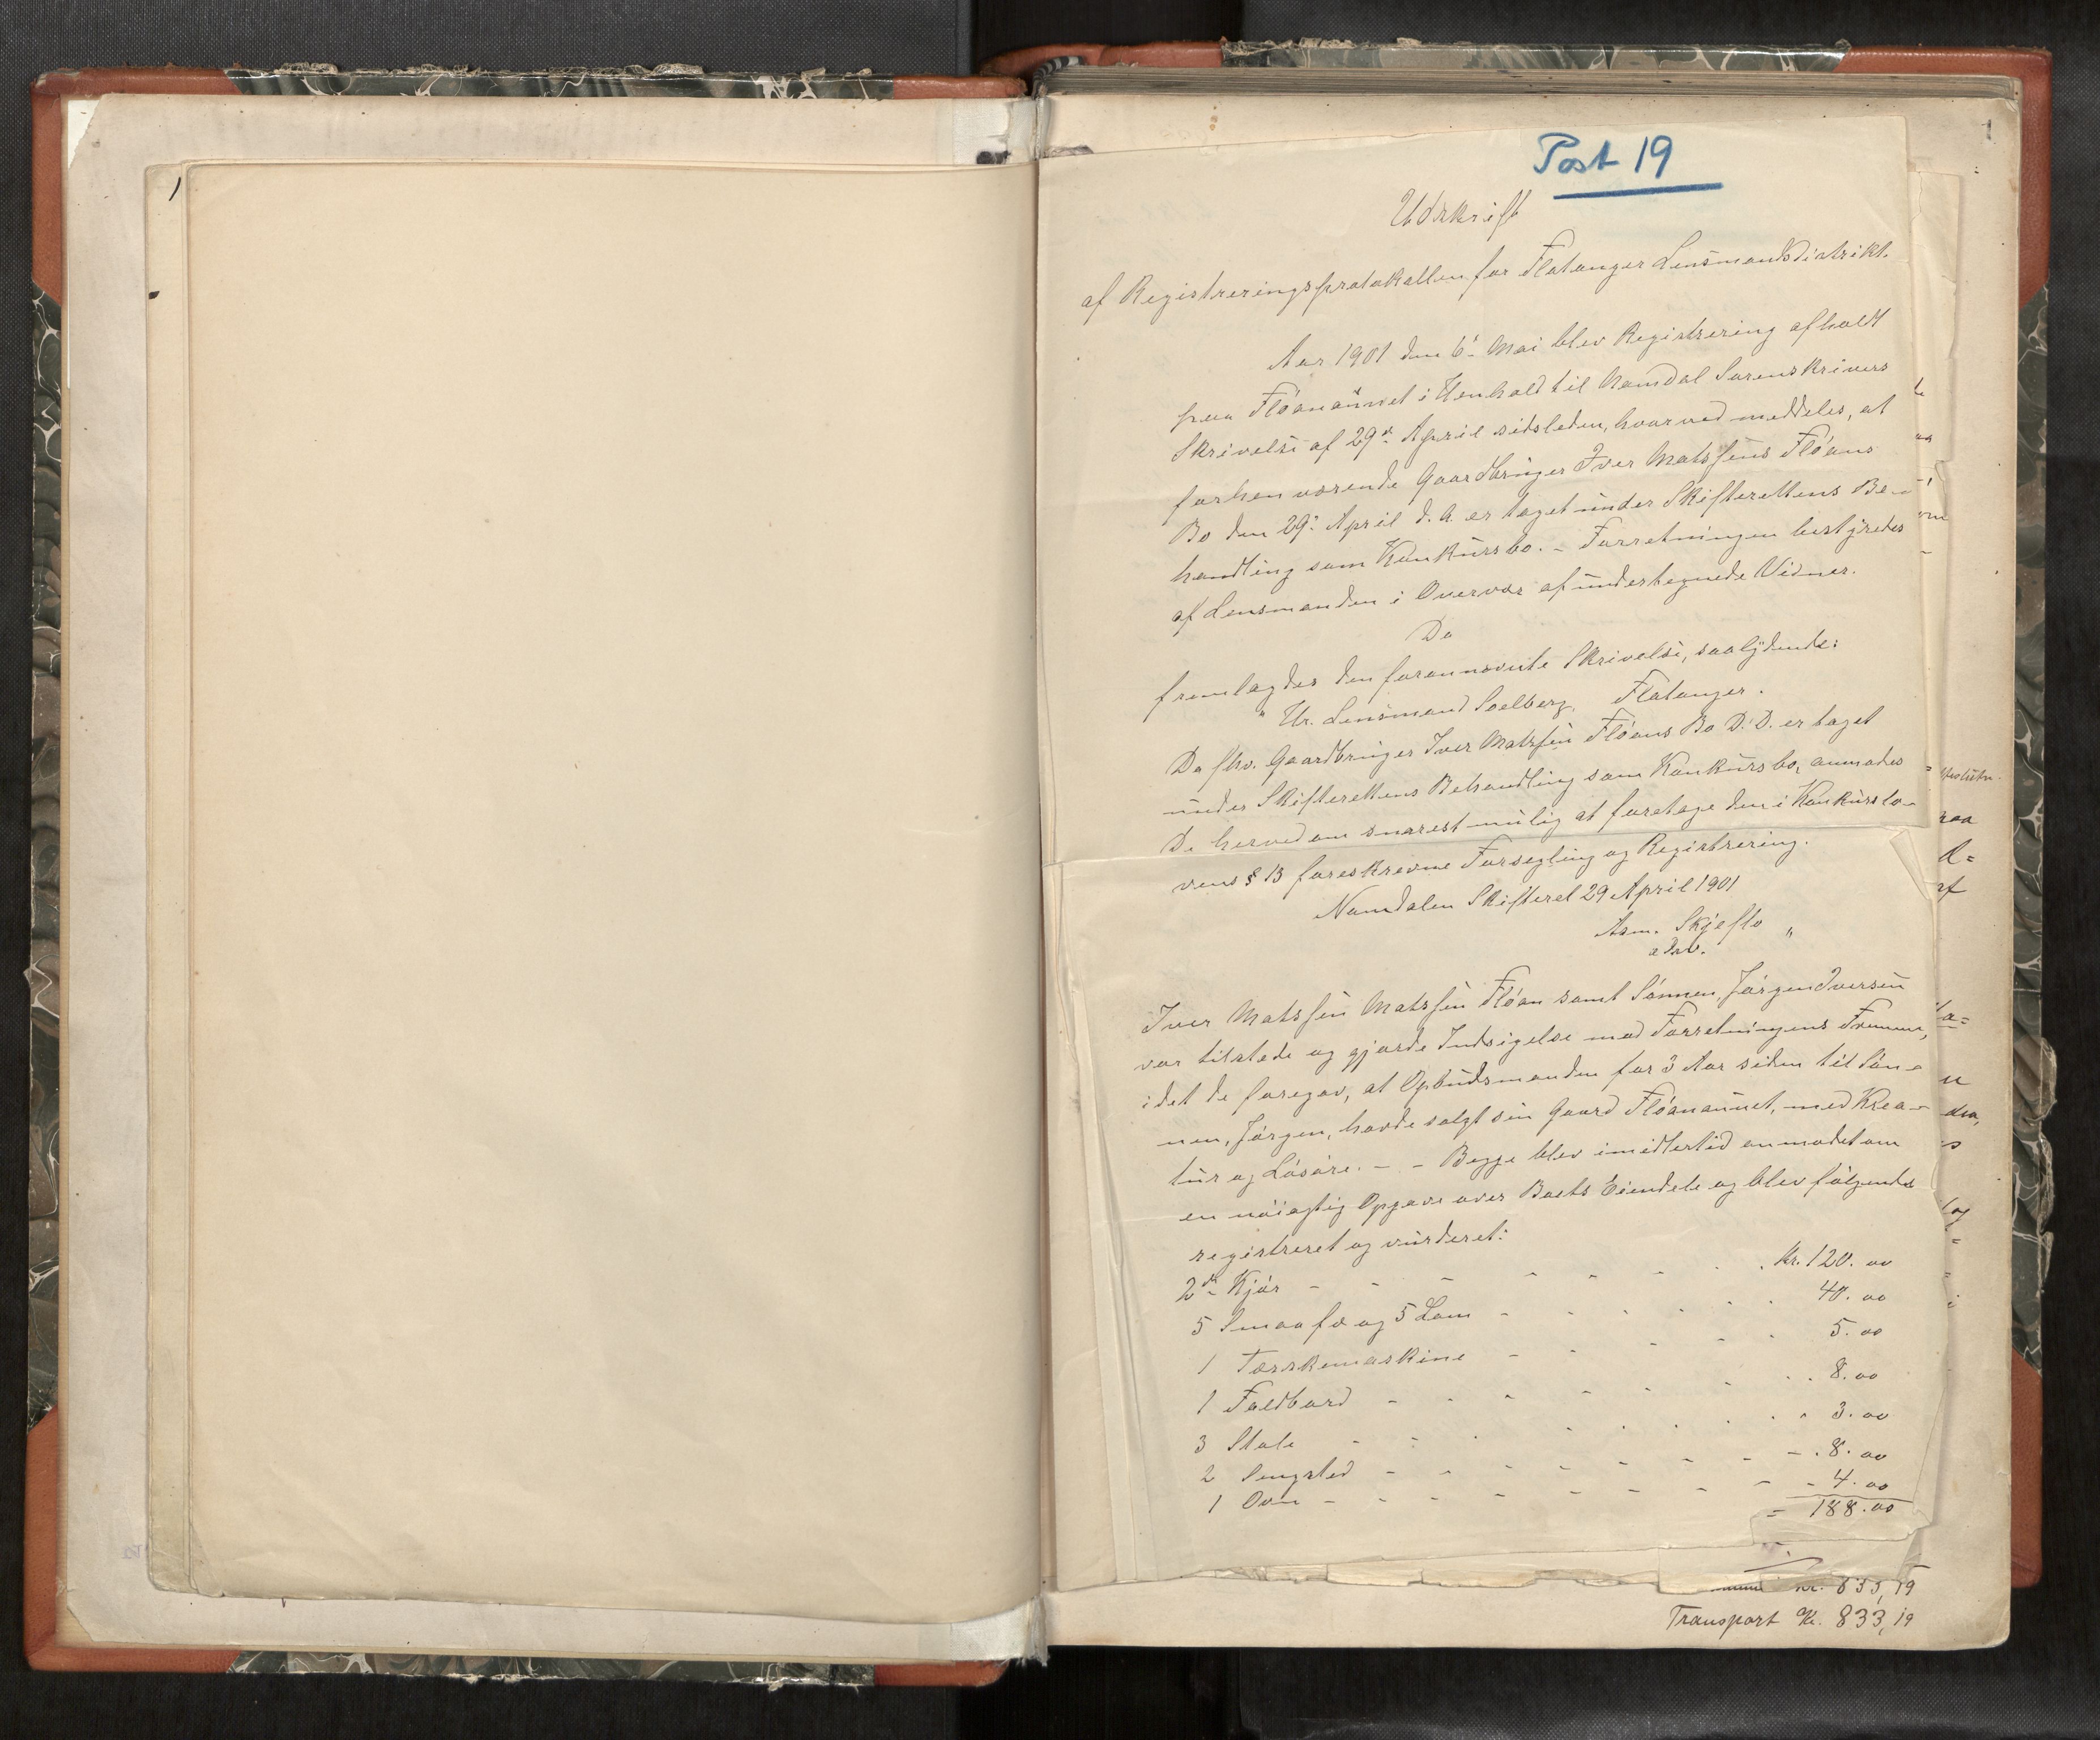 1
Post 19
Udskrift
af Registreringsprotokollen for Flatanger Lensmandsdistrikt.
Aar 1901 den 6' Mai blev Registrering afholdt
paa Fløanaunet i Henhold til Namdal Sorenskrivers
Skrivelse af 29de April sidsleden, hvorved meddeles, at
forhenværende Gaardbruger Iver Matssens Fløans
Bo den 29' April d. A. er taget under Skifterettens Be-
handling som Konkursbo. – Forretningen bestyredes
af Lensmanden i Overvær af undertegnede Vidner.
Da
fremlagdes den forannævnte Skrivelse, saalydende:
" Hr. Lensmand Soelberg, Flatanger.
Da fhv. Gaardbruger Iver Matssen Fløans Bo D. D. er taget
under Skifterettens Behandling som Konkursbo, anmodes
De herved om snarest mulig at foretage den i Konkurslo-
vens § 13 foreskrevne Forsegling og Registrering.
Namdalen Skifteret 29 April 1901
Asm. Skjeflo "
edsv.
Iver Matssen Matssen Fløan samt Sønnen, Jørgen Iversen
var tilstede og gjorde Indsigelse mod Forretningens Fremme,
idet de foregav, at Opbudsmanden for 3 Aar siden til Søn-
nen, Jørgen, havde solgt sin Gaard Fløanaunet, med Krea-
tur og Løsøre. – – Begge blev imidlertid anmodet om
en nøiagtig Opgave over Boets Eiendele og blev følgende
registreret og vurderet:
2de Kjør - - - - - - - Kr. 120.00
5 Smaafæ og 5 Lam - - - - - 40.00
1 Tærskemaskine - - - - - 5.00
1 Foldbord - - - - - - - 8.00
3 Stole - - - - - - - 3.00
2 Sengsted - - - - - - - 8.00
1 Ovn - - - - - - - - 4.00
= 188.00
Kr. 833,19
Transport Kr. 833,19